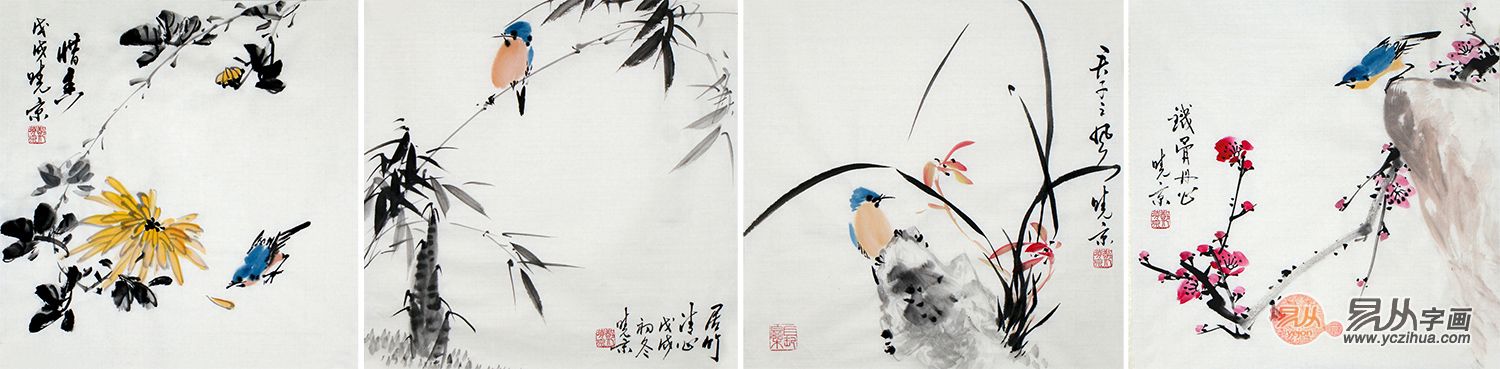 惜香
戊戌晓京
居竹
清心
戊戌
初冬
晓京
君子之风
晓京
鐵骨丹心
晓京
易从
易从字画
www.yczihua.com